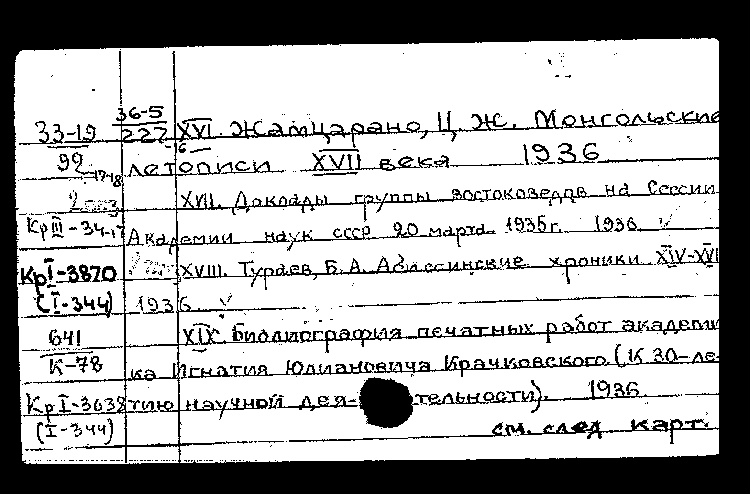 36-5
33-19 222 XVI. Жамцарано, Ц. Ж. Монгольские
92 17-18 -16- летописи XVII века 1936
XVII. Доклады группы востоковедов на Сессии
Кр III-34-17 Академии наук СССР 20 марта 1935г. 1936 ✓
Кр I-3870 XVIII. Тураев, Б. А. Абиссинские хроники XIV-XVI
(I-344) 1936 ✓
641 XIX. Библиография печатных работ академи
К-78 ка Игнатия Юлиановича Крачковского (К 30-ле-
Кр I-3638 тию научной дея- тельности). 1936
(I-344) см. след карт.